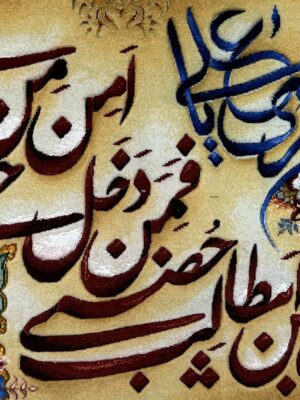 یا علی
امن من
فمن دخل
حصنی
بن ابیطالب